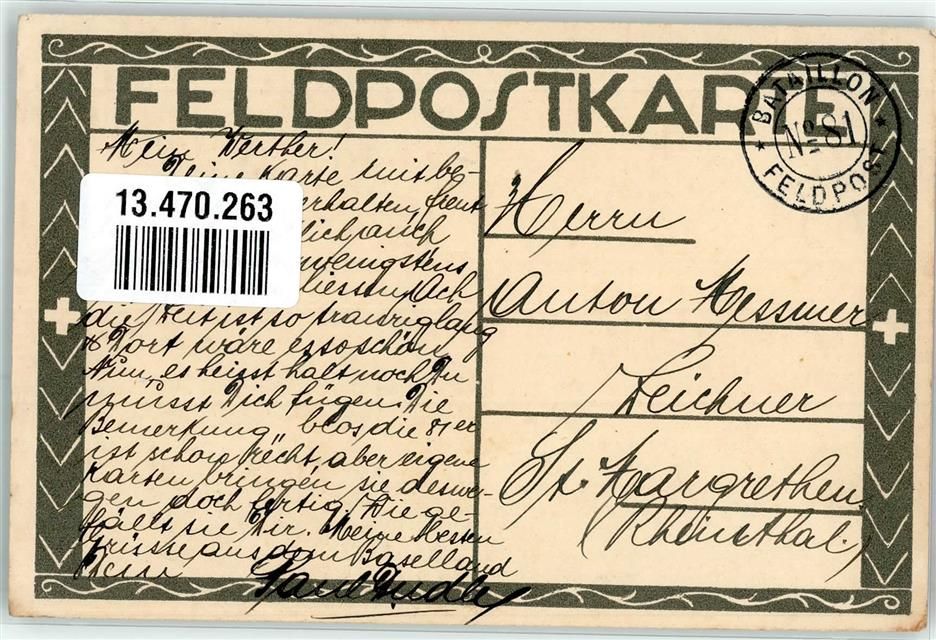 FELDPOSTKARTE
BATAILLON
No 81
FELDPOST
Mein Werther!
Deine Karte mit be-
erhalten, freut
lich auch
wenigstens
Ach
die Zeit ist so traurig lang
& Dort wäre es so schön
Nun, es heisst halt noch Du
musst Dich fügen. Die
Bemerkung blos die 81er
ist schon recht, aber eigene
Karten bringen sie deswe-
gen doch fertig. Wie ge-
fällt sie Dir. Meine besten
Grüsse aus dem Baselland
Paul
13.470.263
Herrn
Anton Messmer
Zeichner
St. Margrethen
(Rheinthal)